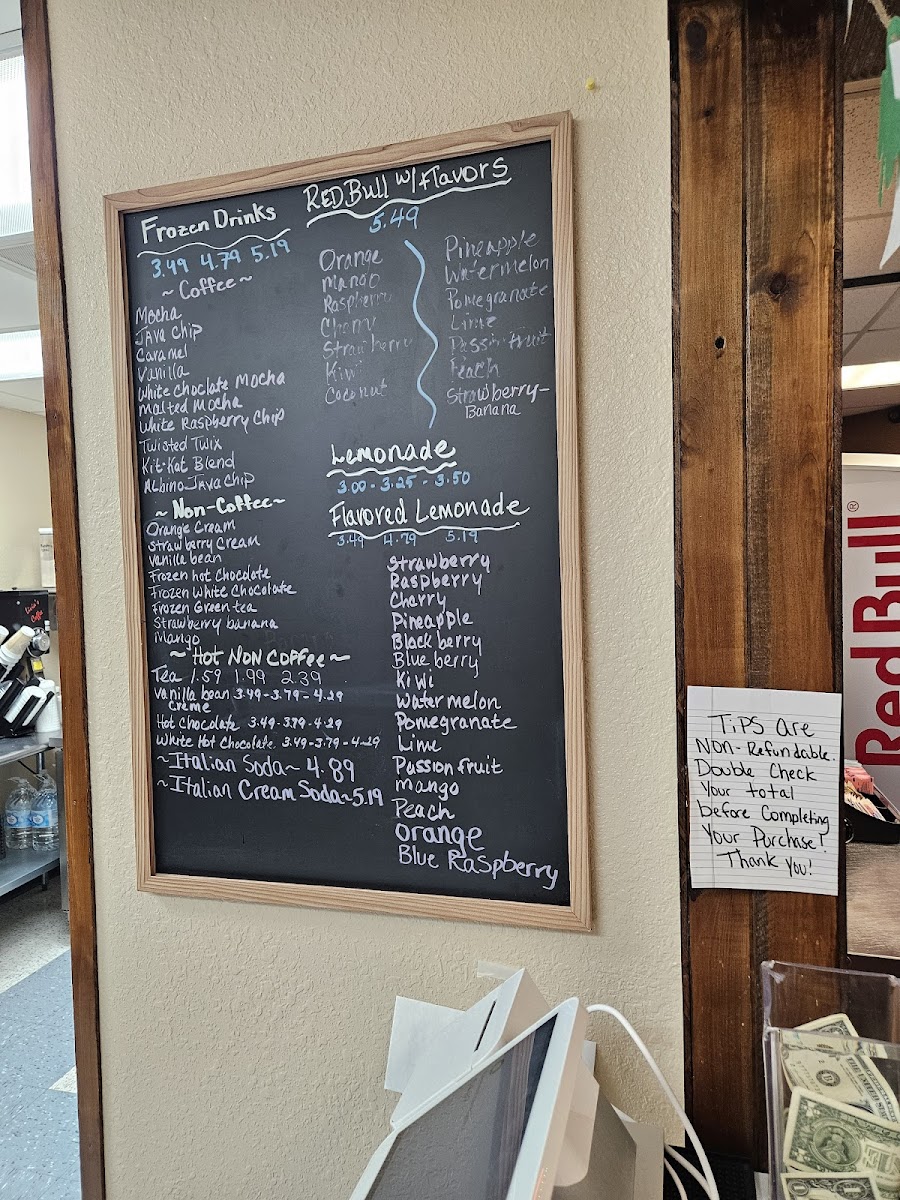 Frozen Drinks
3.49 4.79 5.19
~ Coffee ~
Mocha
Java Chip
Caramel
Vanilla
White Choclate Mocha
Malted Mocha
White Raspberry Chip
Twisted Twix
Kit-Kat Blend
Albino Java Chip
~ Non-Coffee ~
Orange Cream
Strawberry Cream
Vanilla bean
Frozen hot Chocolate
Frozen White Chocolate
Frozen Green tea
Strawberry banana
Mango
~ Hot Non Coffee ~
Tea 1.59 1.99 2.39
Vanilla bean 3.49-3.79-4.29
Créme
Hot Chocolate 3.49-3.79-4.29
White Hot Chocolate 3.49-3.79-4.29
~Italian Soda~ 4.89
~Italian Cream Soda~5.19
Red Bull w/ Flavors
5.49
Orange
Mango
Raspberry
Cherry
Strawberry
Kiwi
Coconut
Pineapple
Watermelon
Pomegranate
Lime
Passionfruit
Peach
Strawberry-
Banana
Lemonade
3.00 - 3.25 - 3.50
Flavored Lemonade
3.49 4.79 5.19
Strawberry
Raspberry
Cherry
Pineapple
Blackberry
Blueberry
Kiwi
Watermelon
Pomegranate
Lime
Passion fruit
Mango
Peach
Orange
Blue Raspberry
Tips are
Non-Refundable.
Double Check
Your total
before Completing
Your Purchase!
Thank You!
Red Bull®